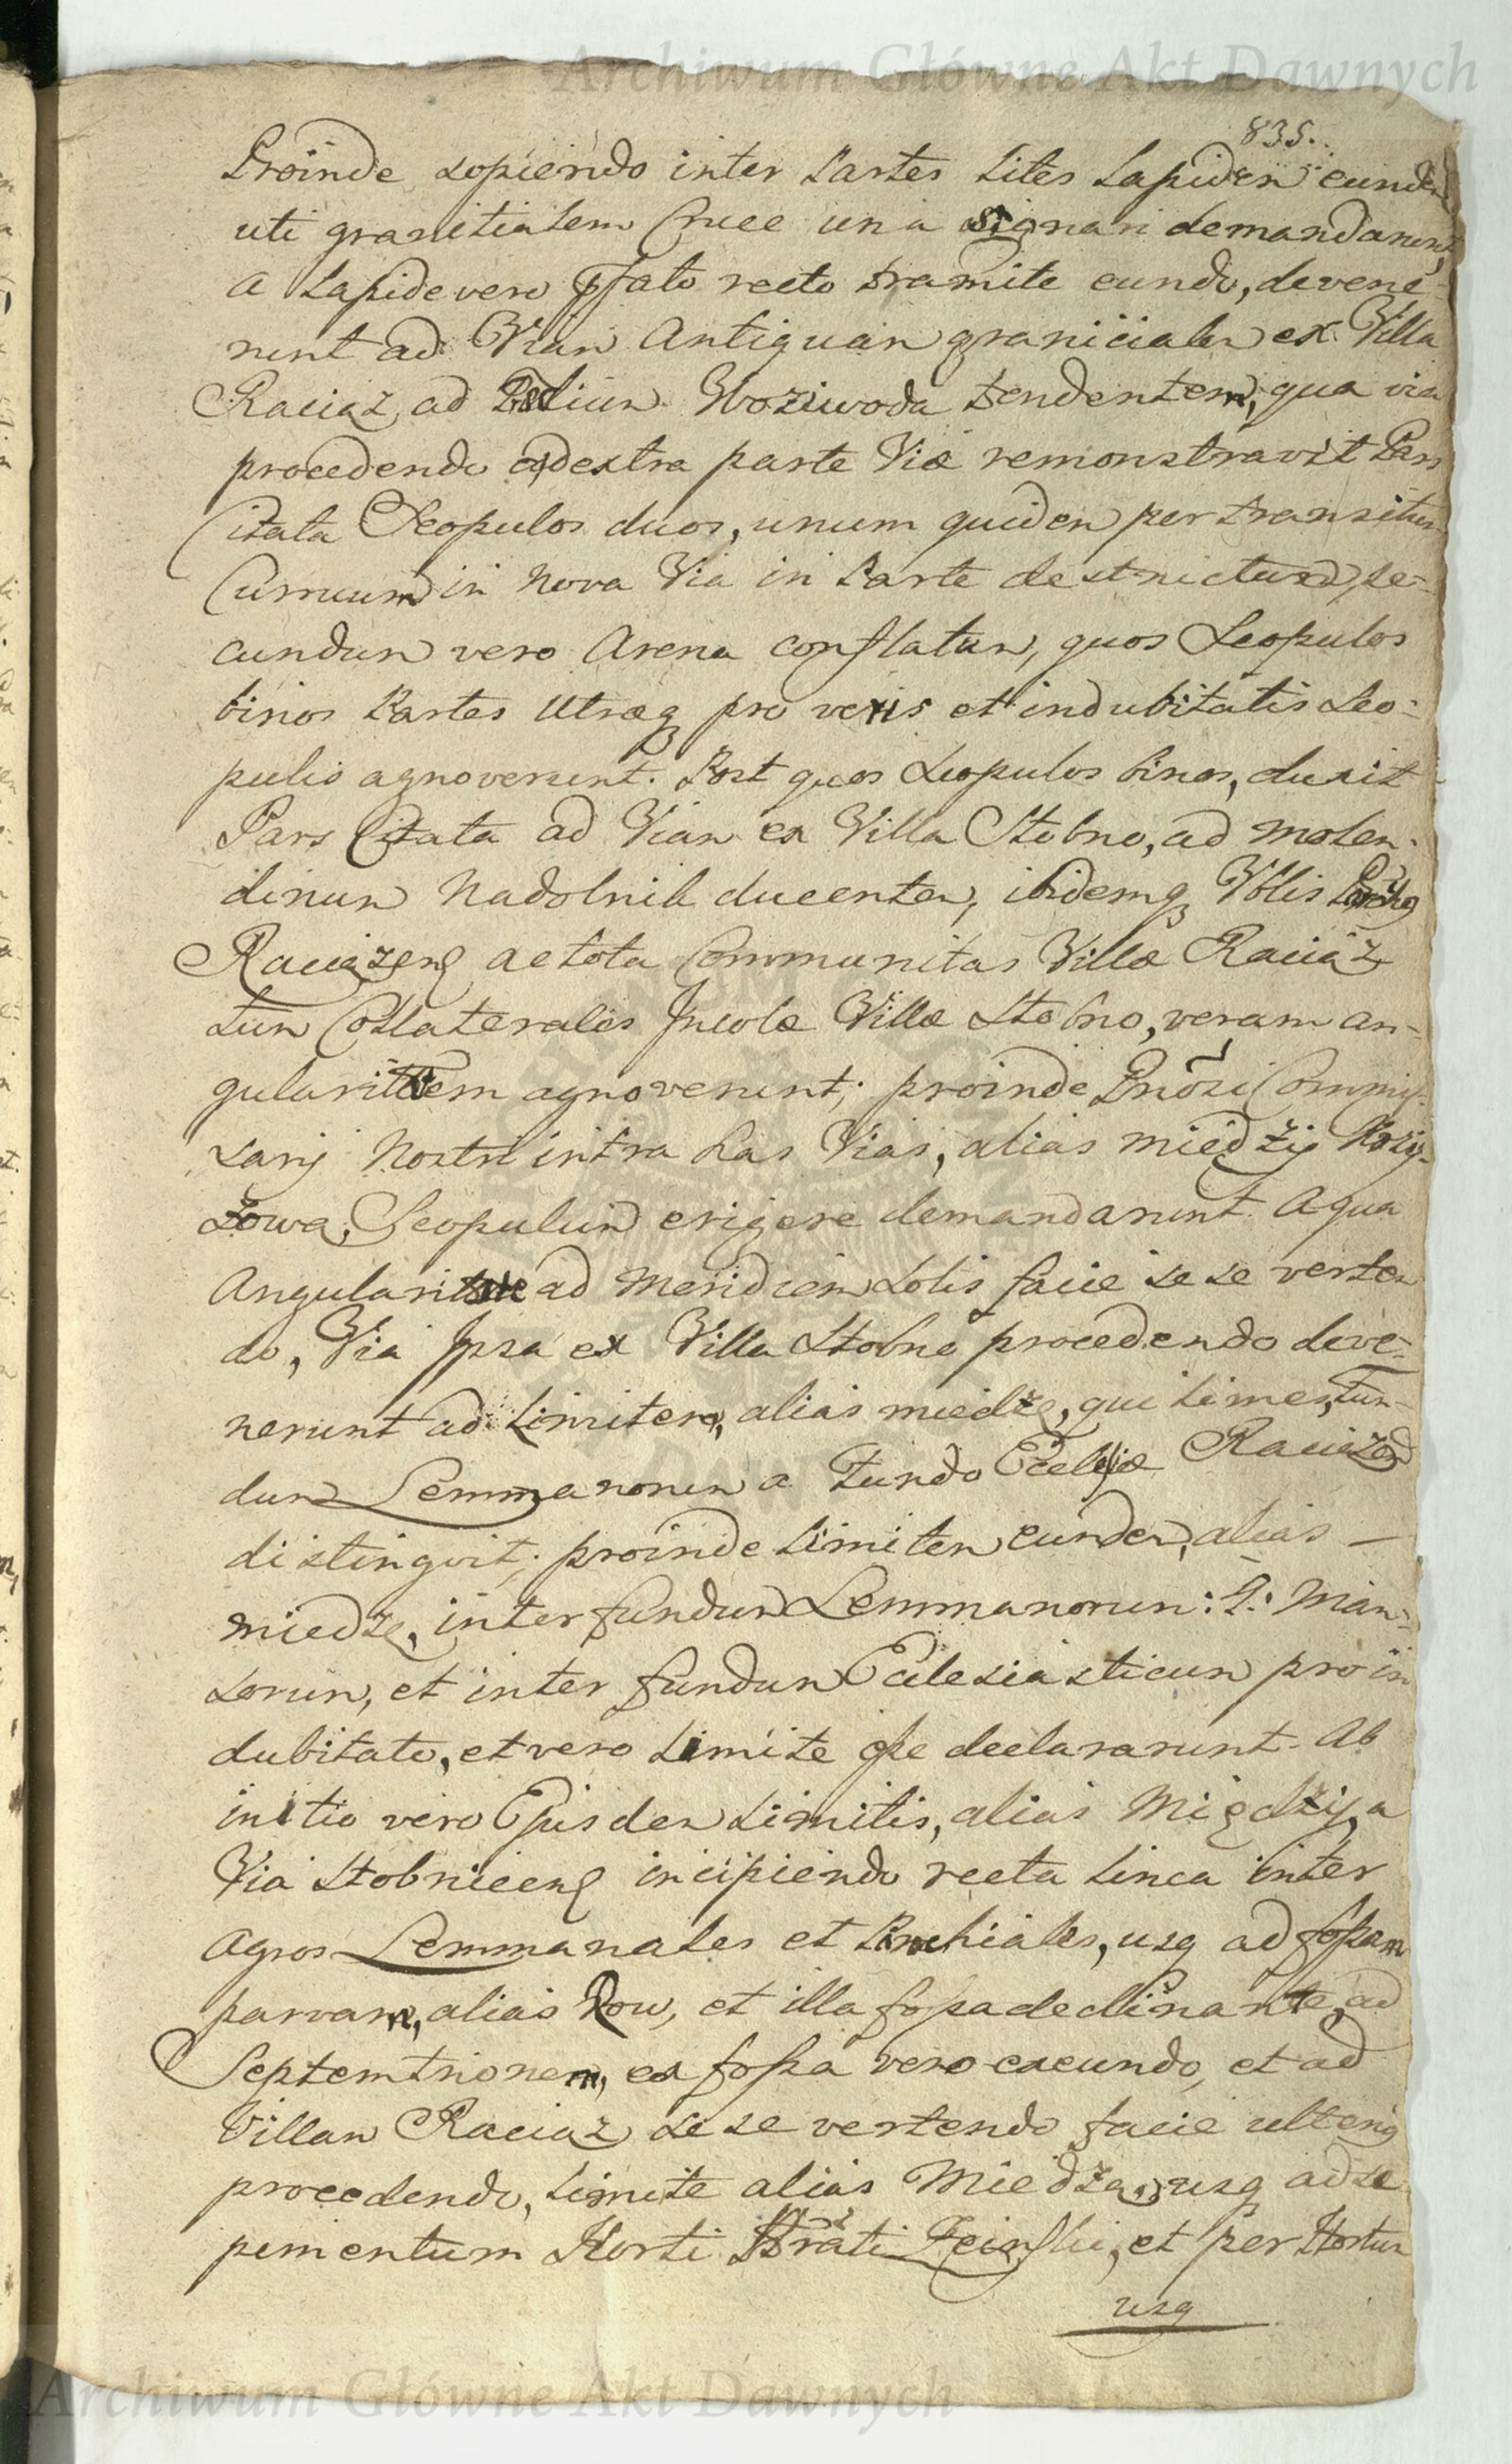 Archiwum Główne Akt Dawnych
835.
Proinde sopiendo inter Partes Lites Lapidem eundem
uti granitialem Cruce una signari demandarunt,
a Lapide vero pffato recto tramite eundo, devene-
runt ad Viam Antiquam granicialem ex Villa
Raciąz ad Woziwoda tendentem, qua via
procedendo a dextra parte Viæ remonstravit Pars
Citata Scopulos duos, unum quidem per transitum
Curruum in nova Via in Parte destructum, se-
cundum vero Arena conflatum, quos Scopulos
binos Partes Utræq pro veris et indubitatis Sco-
pulis agnoverunt. Post quos Scopulos binos, duxit
Pars Citata ad Viam ex Villa Stobno, ad Molen-
dinum Nadolnik ducentem, ibidemq Vblis
Raciązens ac tota Communitas Villæ Raciąz
tum Collaterales Incolæ Villæ Stobno, veram an-
gularitatem agnoverunt; proinde Gnosi Commis-
sarij Nostri intra has Vias, alias miedzy
Scopulum erigere demandarunt. A qua
Angularitate ad Meridiem Solis facie se se verten
do, Via Ipsa ex Villa Stobno procedendo deve-
nerunt ad Limitem, alias miedzę, qui Limes, Fun-
dum Lemmanorum a Fundo Ecclesiæ Raciązens
distingvit; proinde Limitem eundem, alias —
miedzę, inter fundum Lemmanorum :T: Man-
sorum, et inter fundum Ecclesiasticum pro in
dubitato, et vero Limite esse declararunt. Ab
initio vero Ejusdem Limitis, alias Między, a
Via Stobniceens incipiendo recta Linea inter
Agros Lemmanales et Parochiales, usq ad fossam
parvam, alias Row, et illa fossa declinante ad
Septemtrionem, ex fossa vero exeundo, et ad
Villam Raciąz se se vertendo facie ulterius
procedendo, Limite alias Miedzą, usq ad se
pimentum Horti et per Hortum
usq
Archiwum Główne Akt Dawnych